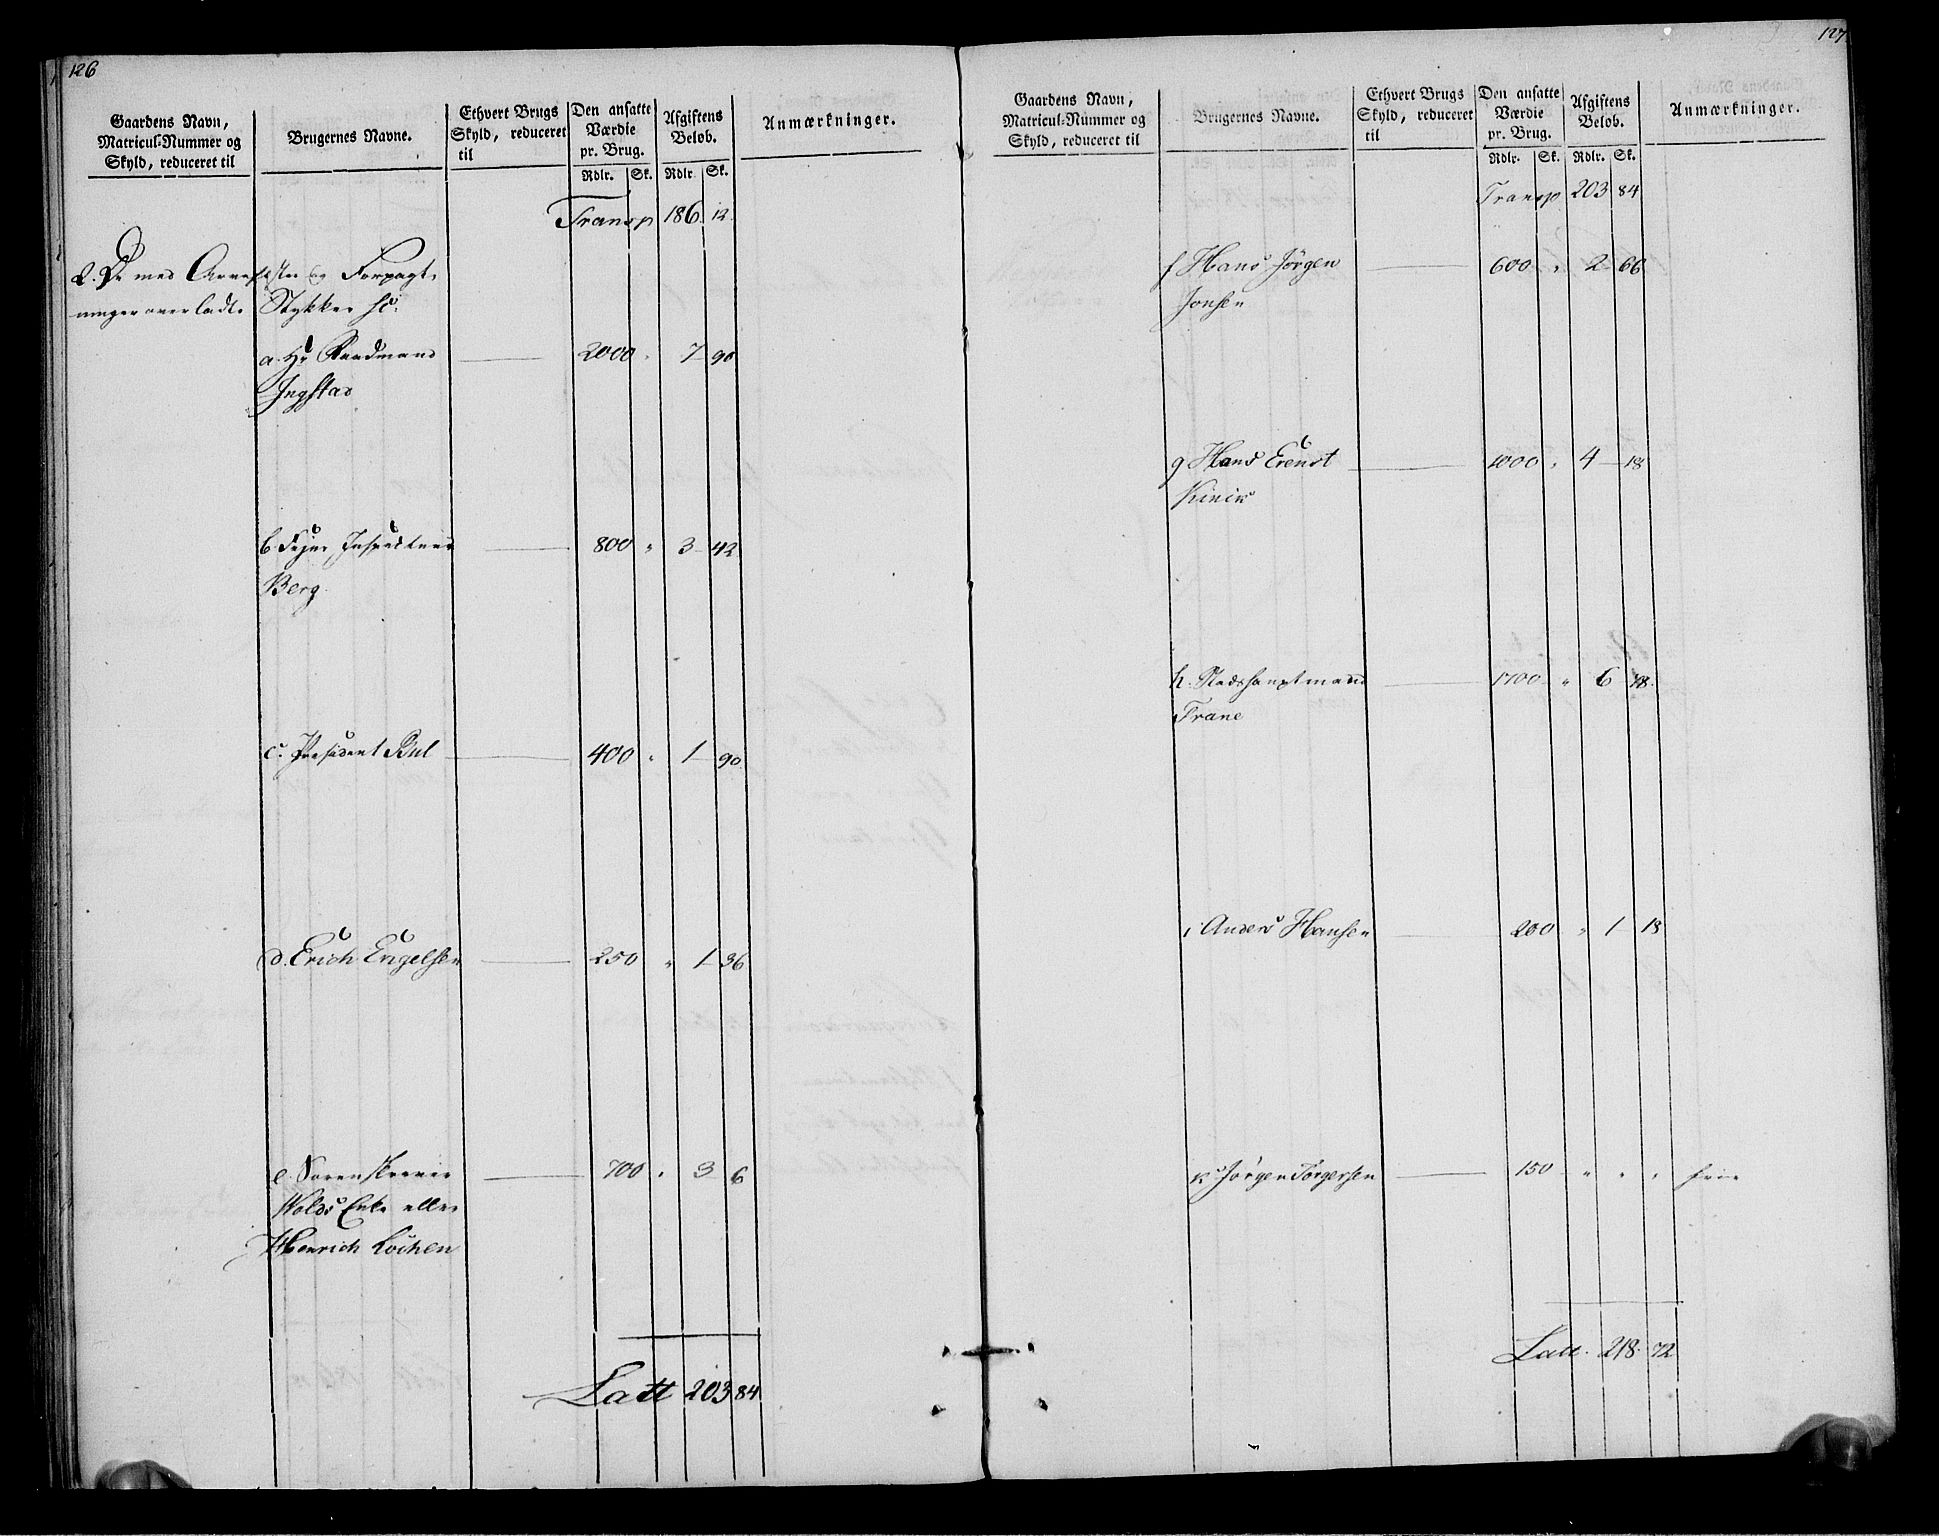 126
Gaardens Navn, Matricul-Nummer og Skyld, reduceret til
Brugernes Navne.
Ethvert Brugs Skyld, reduceret til
Den ansatte Værdie pr. Brug.
Afgiftens Beløb.
Anmærkninger.
Rdlr. Sk. Rdlr. Sk.
Transp 186 12
2. De med Arvefæste og Forpagt-
ninger overladte Stykker
a. Hr Raadmand 2000 " 7 90
Ingstad
b. Inspecteur 800 " 3 42
Berg
c. President Bul 400 " 1 90
d. Erich Engelsen 250 " 1 36
e. Sorenskriver 700 " 3 6
Wolds Enke eller
Henrich Lochen
Latt 203 84
127
Gaardens Navn, Matricul-Nummer og Skyld, reduceret til
Brugernes Navne.
Ethvert Brugs Skyld, reduceret til
Den ansatte Værdie pr. Brug.
Afgiftens Beløb.
Anmærkninger.
Rdlr. Sk. Rdlr. Sk.
Transp 203 84
f Hans Jörgen 600 " 2 66
Jonsen
g Hans Erenst 1000 " 4 18
h. Stadshauptmand 1700 " 6
Trane
i Anders Hansen 200 " 1 18
k Jörgen Törgersen 150 " " " frie
Latt. 218. 72